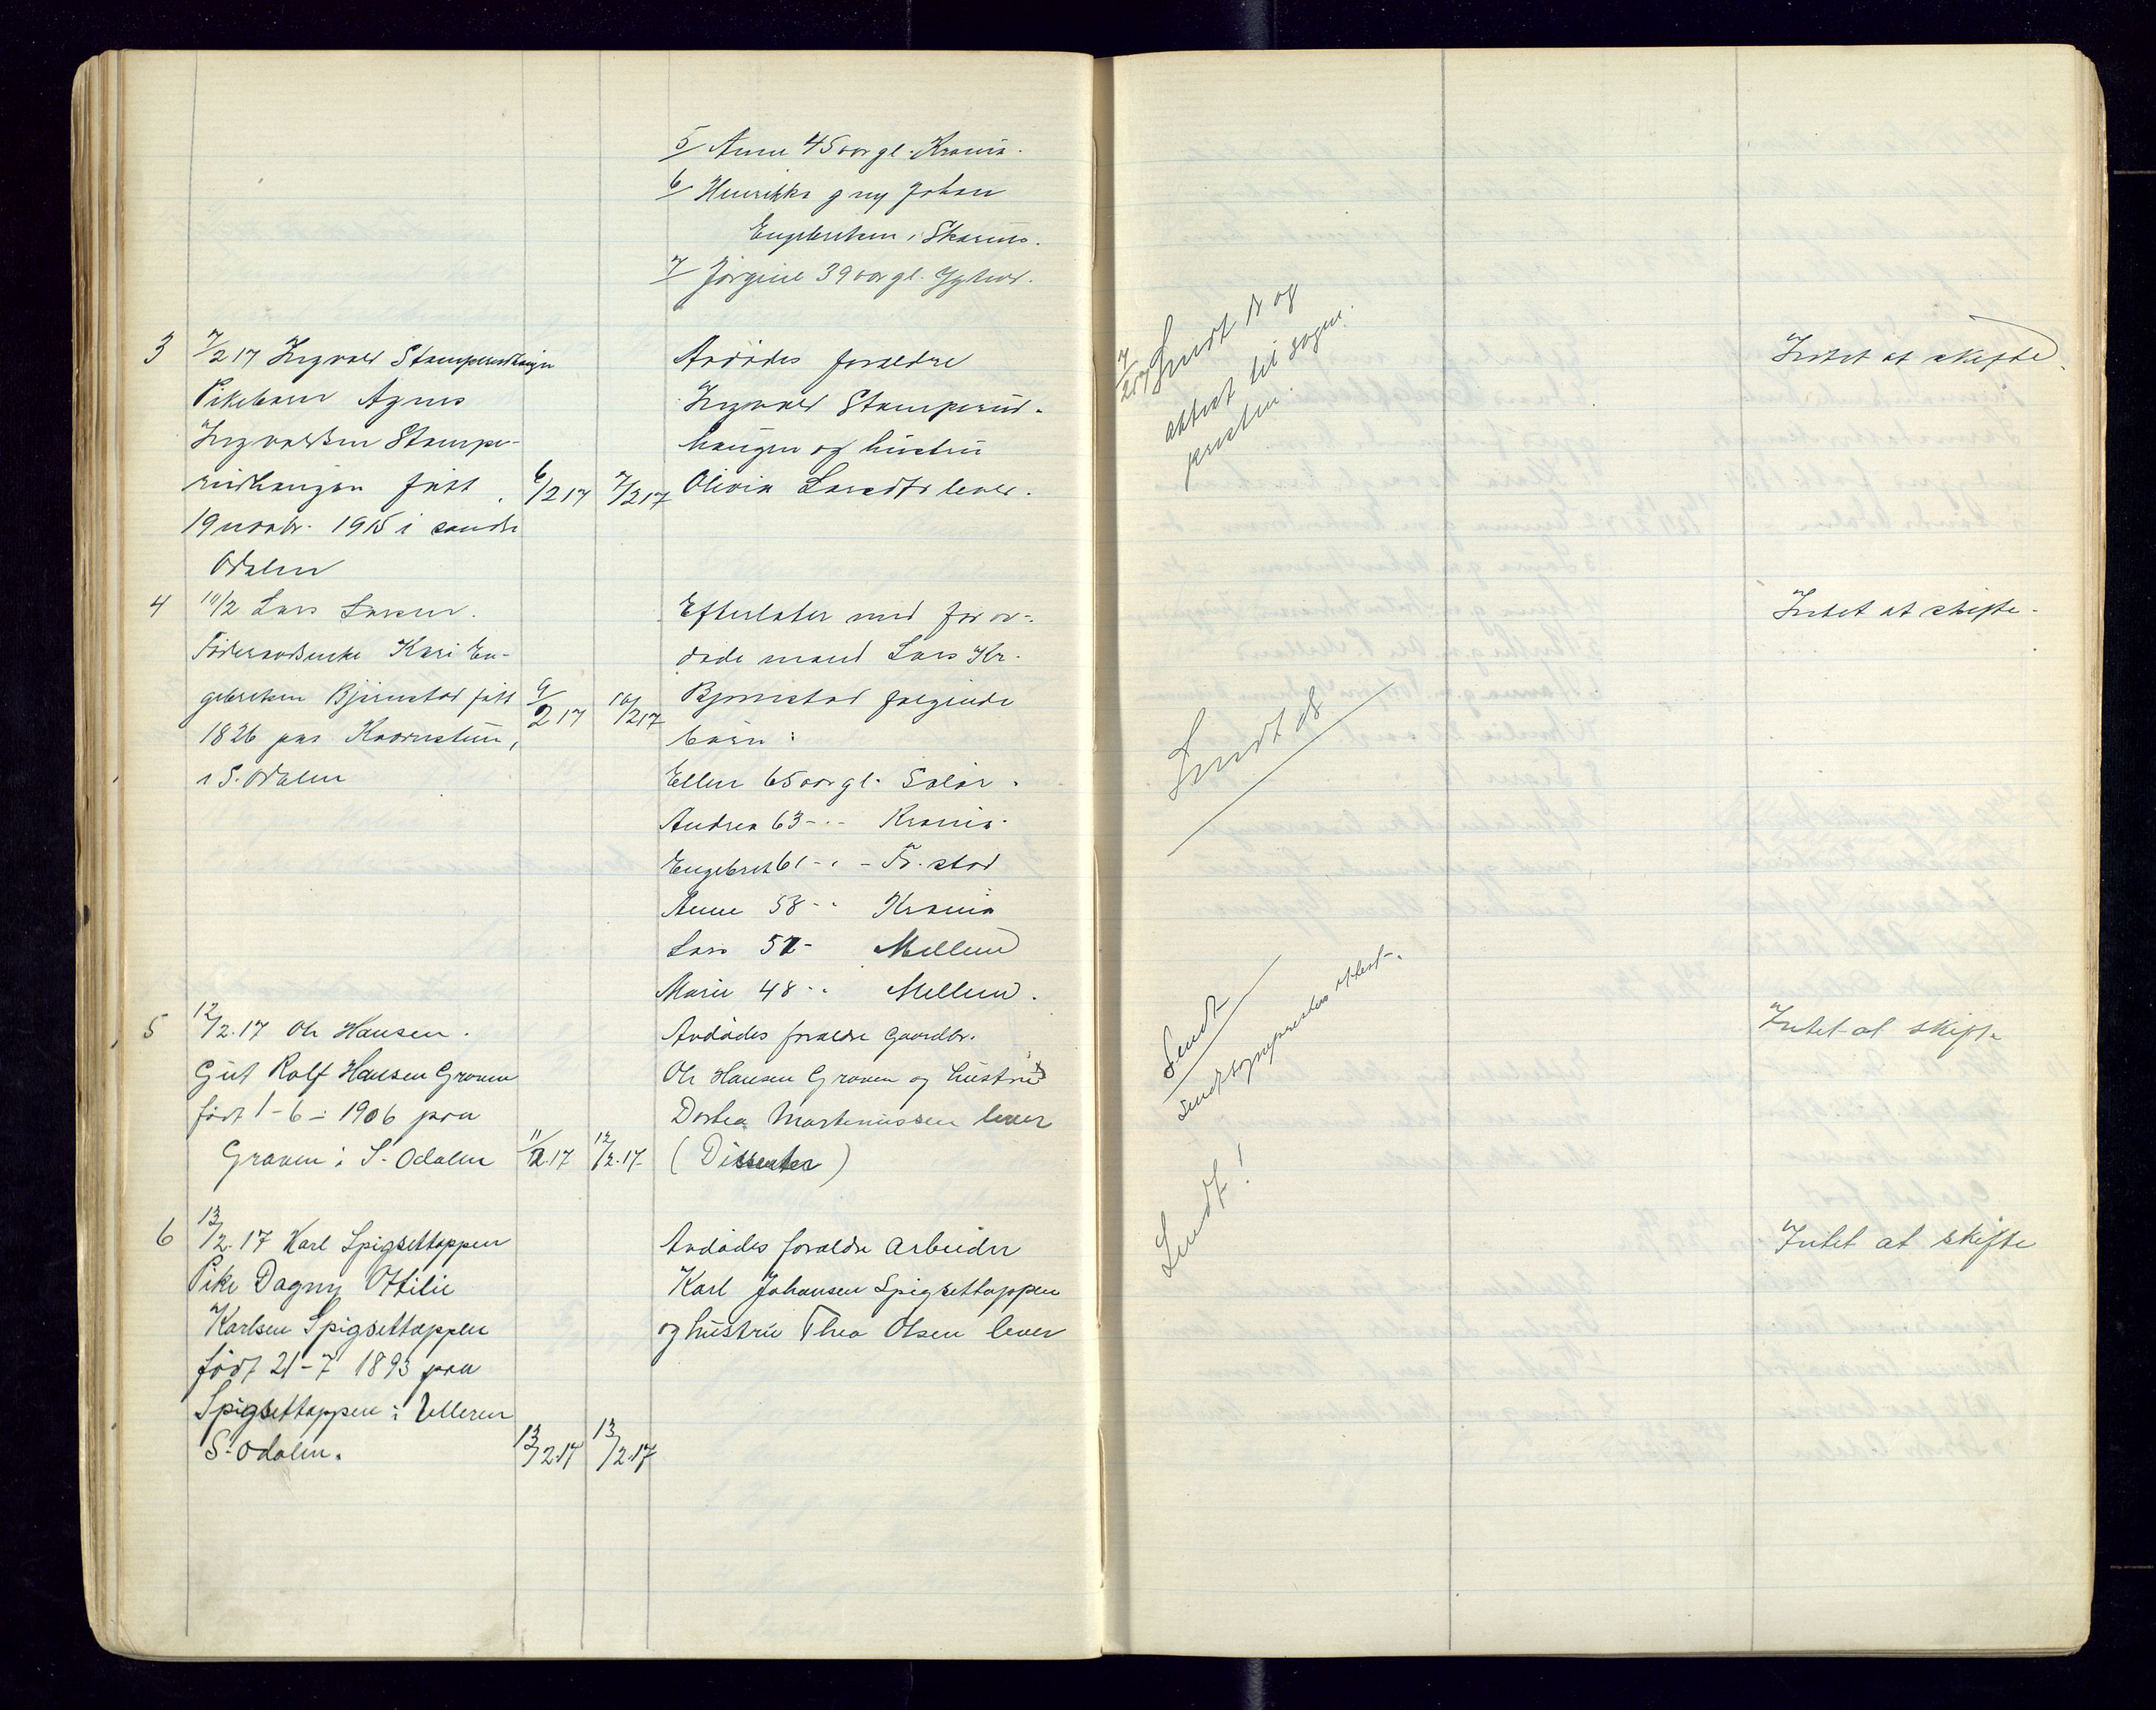 5/ Anne 45 aar gl. Krania.
6/ Henrikka g m Johan
Engebretsen, Skarnes.
7/ Jörgine 39 aar gl.
3
7/2 17 Ingvald Stamperudhaugen
Pikebarn Agnes
Ingvaldsen Stampe-
rudhaugen født
19 novbr. 1915 i søndre
Odalen
6/2 17
7/2 17
Avdødes forældre
Ingvald Stamperud-
haugen og hustru
Olivia lever.
7/2 17 Sendt og
attest til sogne
presten
Intet at skifte
4
10/2 Lars Larsen.
Føderaadsenke Kari En-
gebretsen Bjørnstad født
1826 paa
i S. Odalen
9/2 17
10/2 17
Efterlater med før av-
døde mand Lars Kr.
Bjørnstad følgende
børn:
Ellen 65 aar gl. Solør.
Andrea 63 - " - Krania.
Engebret 61 - " - Fr.stad
Anne 58 - " Krania
Lars 52 - Mellem
Marie 48 - " Mellem.
Sendt
Intet at skifte.
5
12/2.17 Ole Hansen.
Gut Rolf Hansen Graven
født 1-6-1906 paa
Graven i S. Odalen
11/2.17
12/2.17
Avdødes foraldre Gaardbr.
Ole Hansen Graven og hustru
Dortea Martinussen lever
(Dissenter)
Sendt
Sendt sogneprestens attest.
Intet at skifte
6
13/2.17 Karl Spigsettappen
Pike Dagny Ottilie
Karlsen Spigsettappen
født 21-7 1893 paa
Spigsettappen i Ulleren
S. Odalen.
13/2.17
13/2.17
Avdødes foraldre Arbeider
Karl Johansen Spigsettappen
og hustru Thea Olsen lever
Sendt!
Intet at skifte